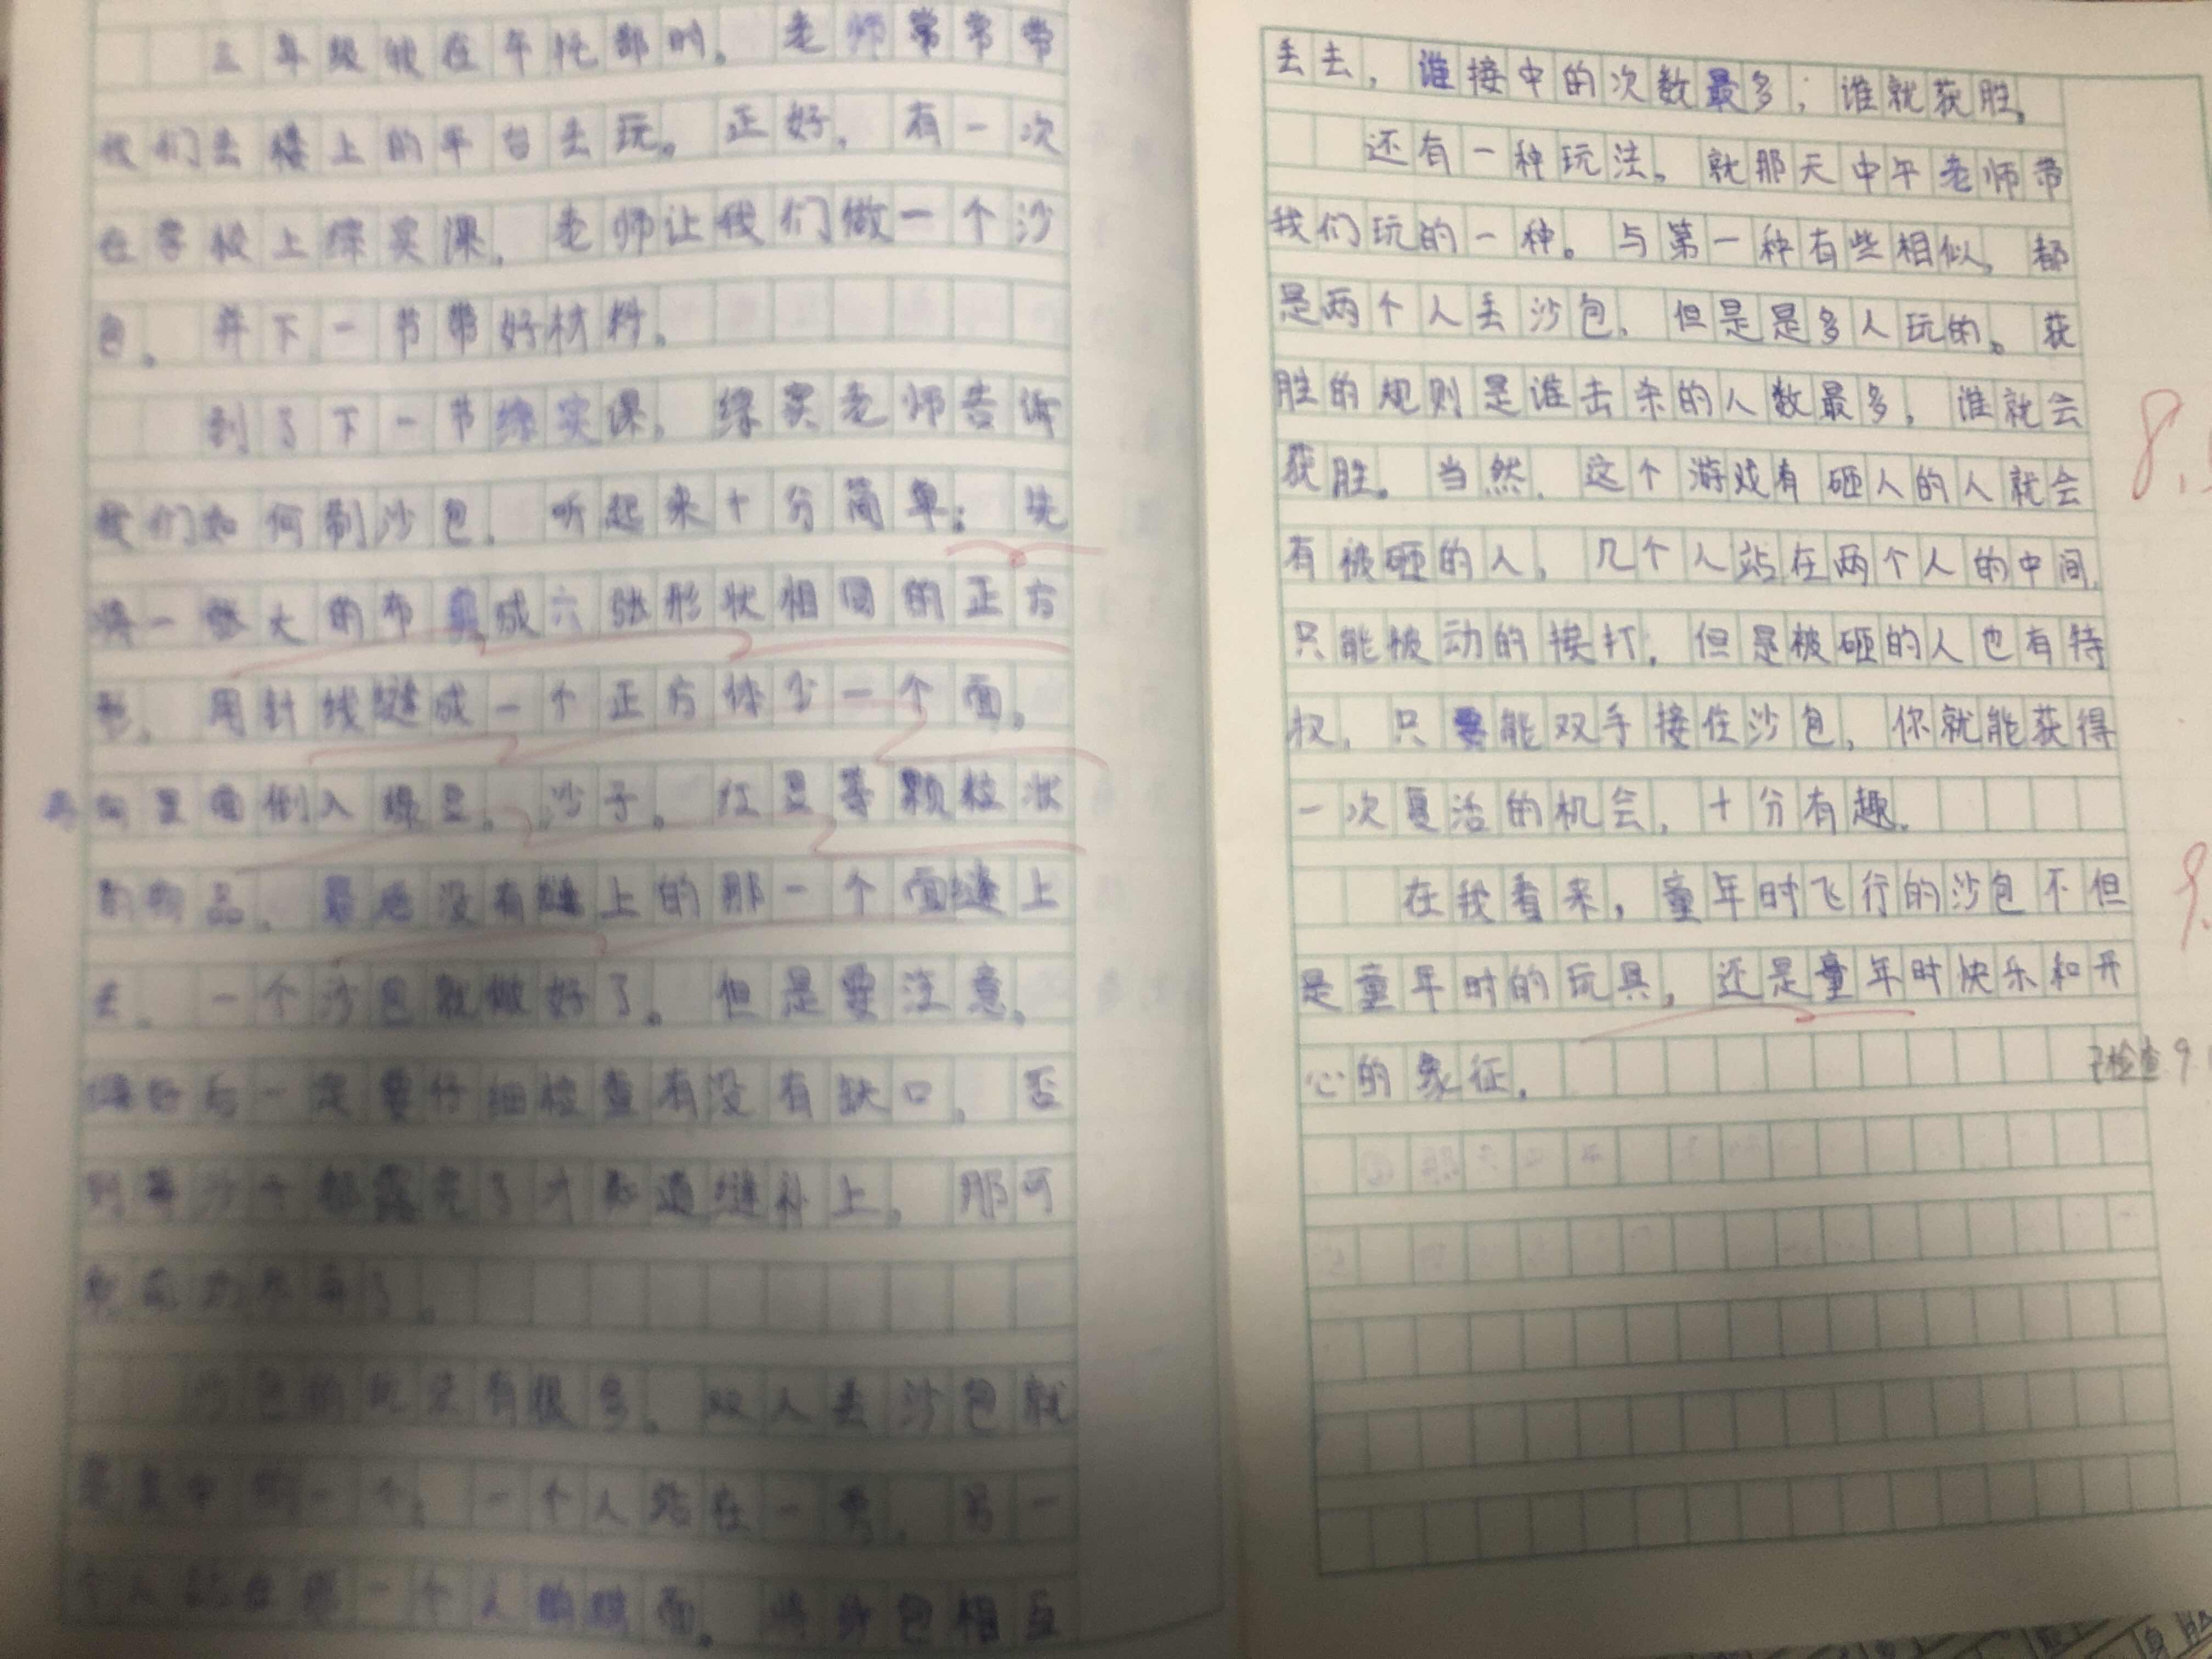 三年级我在午托部时，老师常常带
我们去楼上的平台去玩。正好，有一次
在学校上综实课，老师让我们做一个沙
包，并下一节带好材料。
到了下一节综实课，综实老师告诉
我们如何制沙包，听起来十分简单：先
将一张大的布剪成六张形状相同的正方
形，用针线缝成一个正方体少一个面，
再向里面倒入绿豆、沙子、红豆等颗粒状
的物品，最后没有缝上的那一个面缝上
去，一个沙包就做好了。但是要注意，
缝好后一定要仔细检查有没有缺口，否
则等沙子都露完了才知道缝补上，那可
就前功尽弃了。
沙包的玩法有很多，双人丢沙包就
是其中的一个：一个人站在一旁，另一
个人站在那一个人的对面，将沙包相互
丢去，谁接中的次数最多；谁就获胜。
还有一种玩法，就那天中午老师带
我们玩的一种。与第一种有些相似，都
是两个人丢沙包，但是是多人玩的。获
胜的规则是谁击杀的人数最多，谁就会
获胜。当然，这个游戏有砸人的人就会
有被砸的人，几个人站在两个人的中间，
只能被动的挨打，但是被砸的人也有特
权，只要能双手接住沙包，你就能获得
一次复活的机会，十分有趣。
在我看来，童年时飞行的沙包不但
是童年时的玩具，还是童年时快乐和开
心的象征。
已检查9.
8.
9.